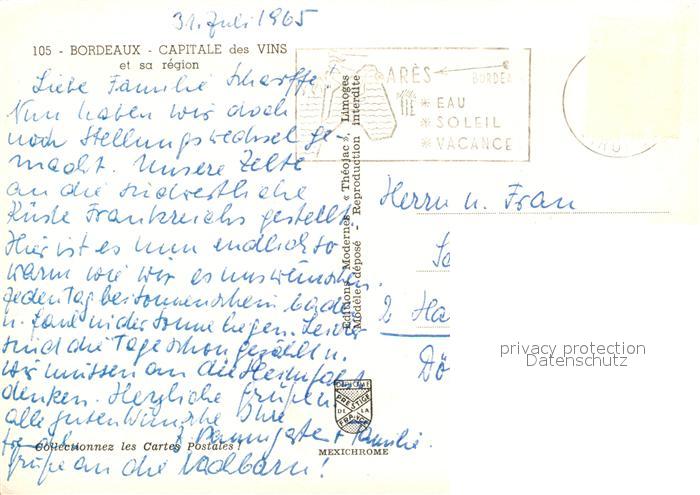 31. Juli 1965
105 - BORDEAUX - CAPITALE des VINS
et sa région
Liebe Familie Scharffe!
Nun haben wir doch
noch Stellungswechsel ge-
macht. Unsere Zelte
an die südwestliche
Küste Frankreichs gestellt.
Hier ist es nun endlich so
warm wie wir es uns wünschen.
Jeden Tag bei Sonnenschein baden
u. faul in der Sonne liegen. Leider
sind die Tage schon gezählt u.
wir müssen an die Heimfahrt
denken. Herzliche Grüße u.
alle guten Wünsche Ihre
Baumgarten + Familie.
Grüße an die Nachbarn!
Collectionnez les Cartes Postales !
Editions Modernes « Théojac », Limoges
Modèle déposé - Reproduction interdite
ARÈS
BORDEA
* EAU
* SOLEIL
* VACANCE
Herrn u. Frau
2 Ha
Dö
PRESTIGE
DE LA
FRANCE
MEXICHROME
privacy protection
Datenschutz